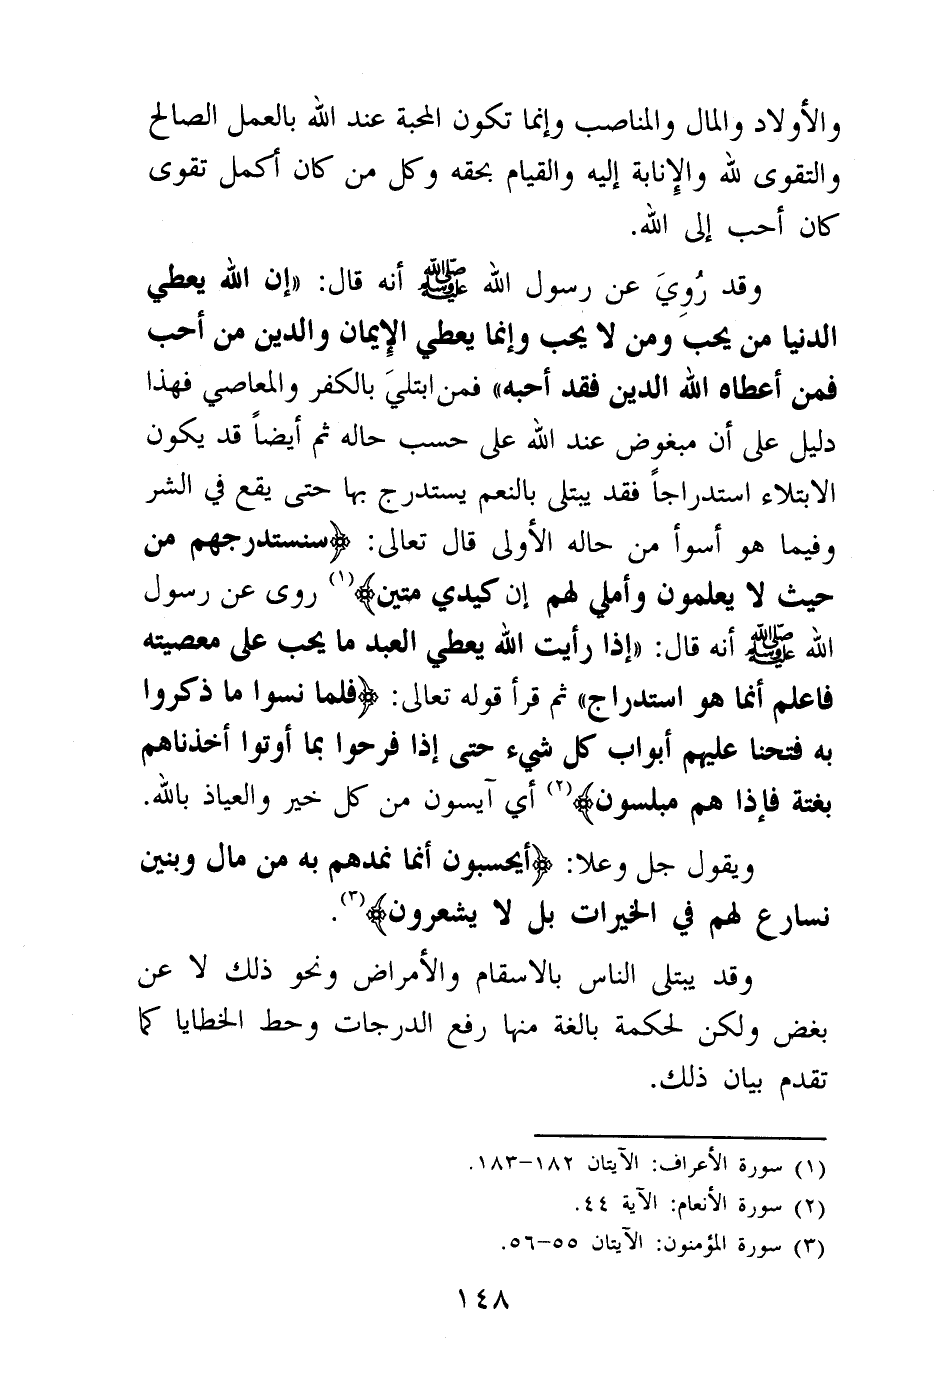 والأولاد والمال والمناصب وإنما تكون المحبة عند الله بالعمل الصالح
والتقوى لله والإنابة إليه والقيام بحقه وكل من كان أكمل تقوى
كان أحب إلى الله.
وقد رُوِيَ عن رسول الله ﷺ أنه قال: «إن الله يعطي
الدنيا من يحب ومن لا يحب وإنما يعطي الإيمان والدين من أحب
فمن أعطاه الله الدين فقد أحبه» فمن ابتليَ بالكفر والمعاصي فهذا
دليل على أن مبغوض عند الله على حسب حاله ثم أيضاً قد يكون
الابتلاء استدراجاً فقد يبتلى بالنعم يستدرج بها حتى يقع في الشر
وفيما هو أسوأ من حاله الأولى قال تعالى: ﴿سنستدرجهم من
حيث لا يعلمون وأملي لهم إن كيدي متين﴾(١) روى عن رسول
الله ﷺ أنه قال: «إذا رأيت الله يعطي العبد ما يحب على معصيته
فاعلم أنما هو استدراج» ثم قرأ قوله تعالى: ﴿فلما نسوا ما ذكروا
به فتحنا عليهم أبواب كل شيء حتى إذا فرحوا بما أوتوا أخذناهم
بغتة فإذا هم مبلسون﴾(٢) أي آيسون من كل خير والعياذ بالله.
ويقول جل وعلا: ﴿أيحسبون أنما نمدهم به من مال وبنين
نسارع لهم في الخيرات بل لا يشعرون﴾(٣).
وقد يبتلى الناس بالاسقام والأمراض ونحو ذلك لا عن
بغض ولكن لحكمة بالغة منها رفع الدرجات وحط الخطايا كما
تقدم بيان ذلك.
(١) سورة الأعراف: الآيتان ١٨٢-١٨٣.
(٢) سورة الأنعام: الآية ٤٤.
(٣) سورة المؤمنون: الآيتان ٥٥-٥٦.
١٤٨